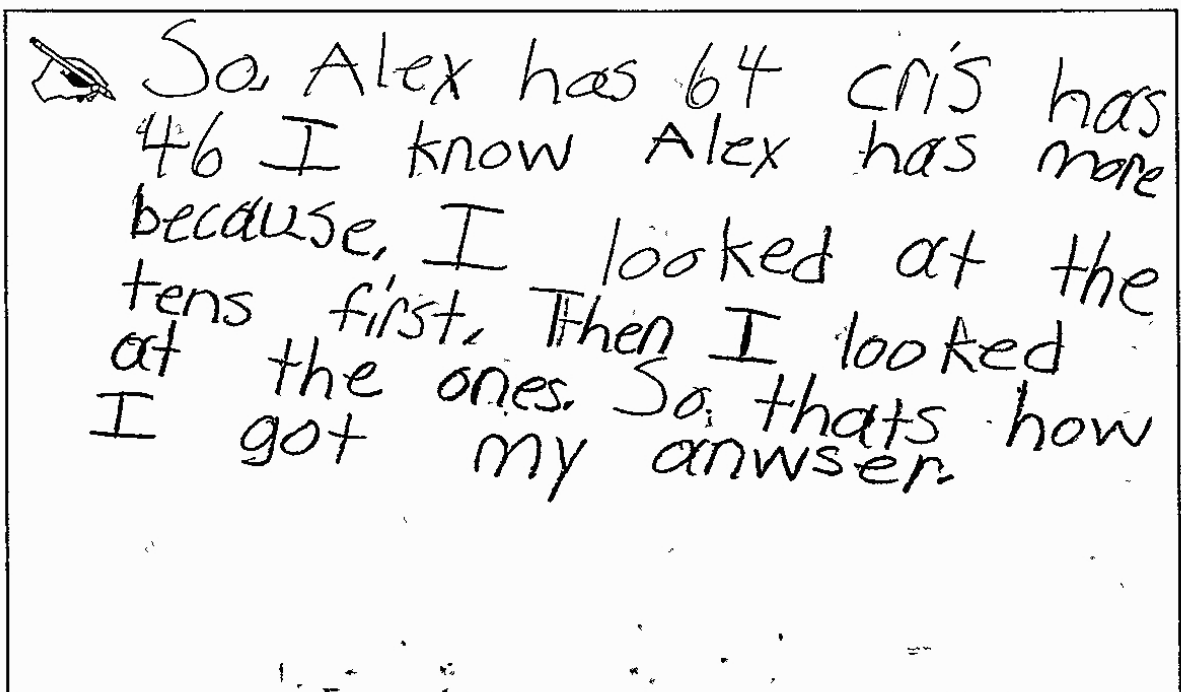 So, Alex has 64 cris has
46 I know Alex has more
because, I looked at the
tens first. Then I looked
at the ones. So, thats how
I got my anwser.